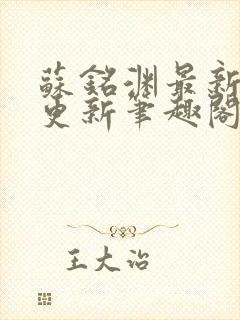 蘇銘淵最新
更新筆趣閣
王大治